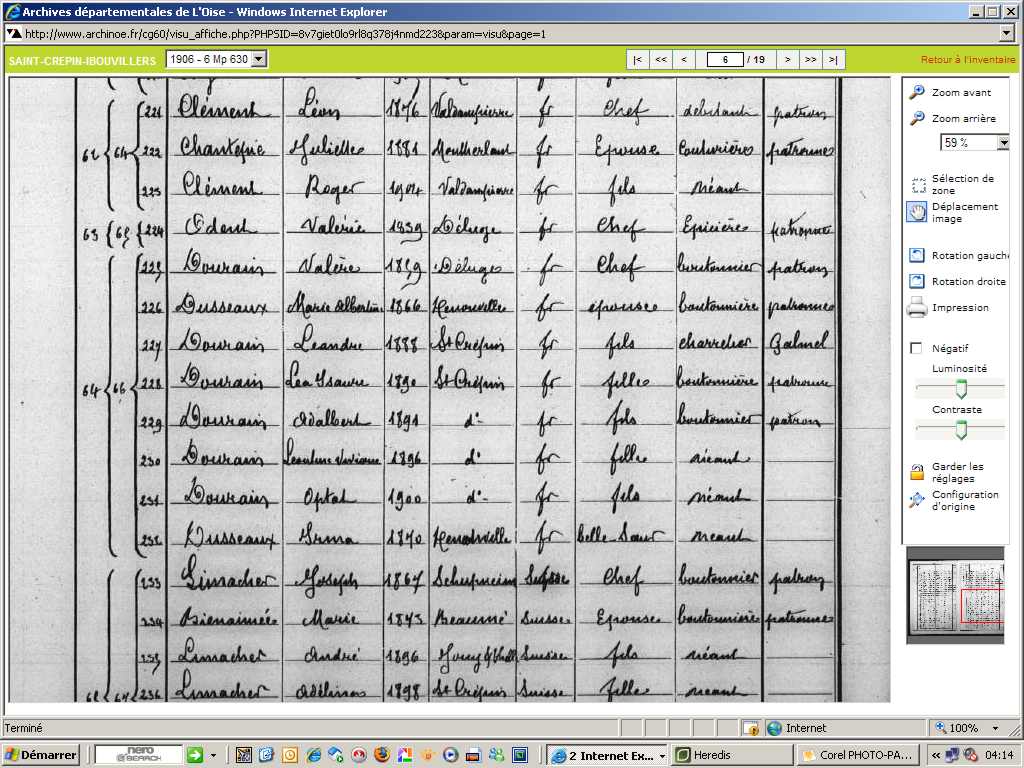 Archives départementales de L'Oise - Windows Internet Explorer
http://www.archinoe.fr/cg60/visu_affiche.php?PHPSID=8v7giet0lo9rl8q378j4nmd223&param=visu&page=1
SAINT-CREPIN-IBOUVILLERS 1906 - 6 Mp 630 |< << < 6 / 19 > >> >| Retour à l'inventaire
221 Clément Léon 1876 Valdampierre fr Chef débitant patron
62 64 222 Chantepie Juliette 1881 Montherlant fr Epouse Couturière patronne
223 Clément Roger 1904 Valdampierre fr fils néant
63 65 224 Odent Valérie 1839 Déluge fr Chef Epicière patronne
225 Dourain Valère 1859 Déluge fr Chef boutonnier patron
226 Dusseaux Marie Albertine 1866 Henonville fr épouse boutonnière patronne
227 Dourain Leandre 1888 St Crépin fr fils charretier Galmel
64 66 228 Dourain Lea Isaure 1890 St Crépin fr fille boutonnière patronne
229 Dourain Adalbert 1891 d° fr fils boutonnier patron
230 Dourain 1896 d° fr fille néant
231 Dourain Optat 1900 d° fr fils néant
232 Dusseaux Irma 1870 Henonville fr belle Sœur néant
233 Limacher Joseph 1867 Suisse Chef boutonnier patron
234 Bienaimée Marie 1873 Beaumé Suisse Epouse boutonnière patronne
235 Limacher André 1896 Suisse fils néant
236 Limacher Adélina 1898 St Crépin Suisse fille néant
Zoom avant
Zoom arrière
59 %
Sélection de
zone
Déplacement
image
Rotation gauche
Rotation droite
Impression
Négatif
Luminosité
Contraste
Garder les
réglages
Configuration
d'origine
Terminé Internet 100%
Démarrer nero SEARCH 2 Internet Ex... Heredis Corel PHOTO-PA... 04:14